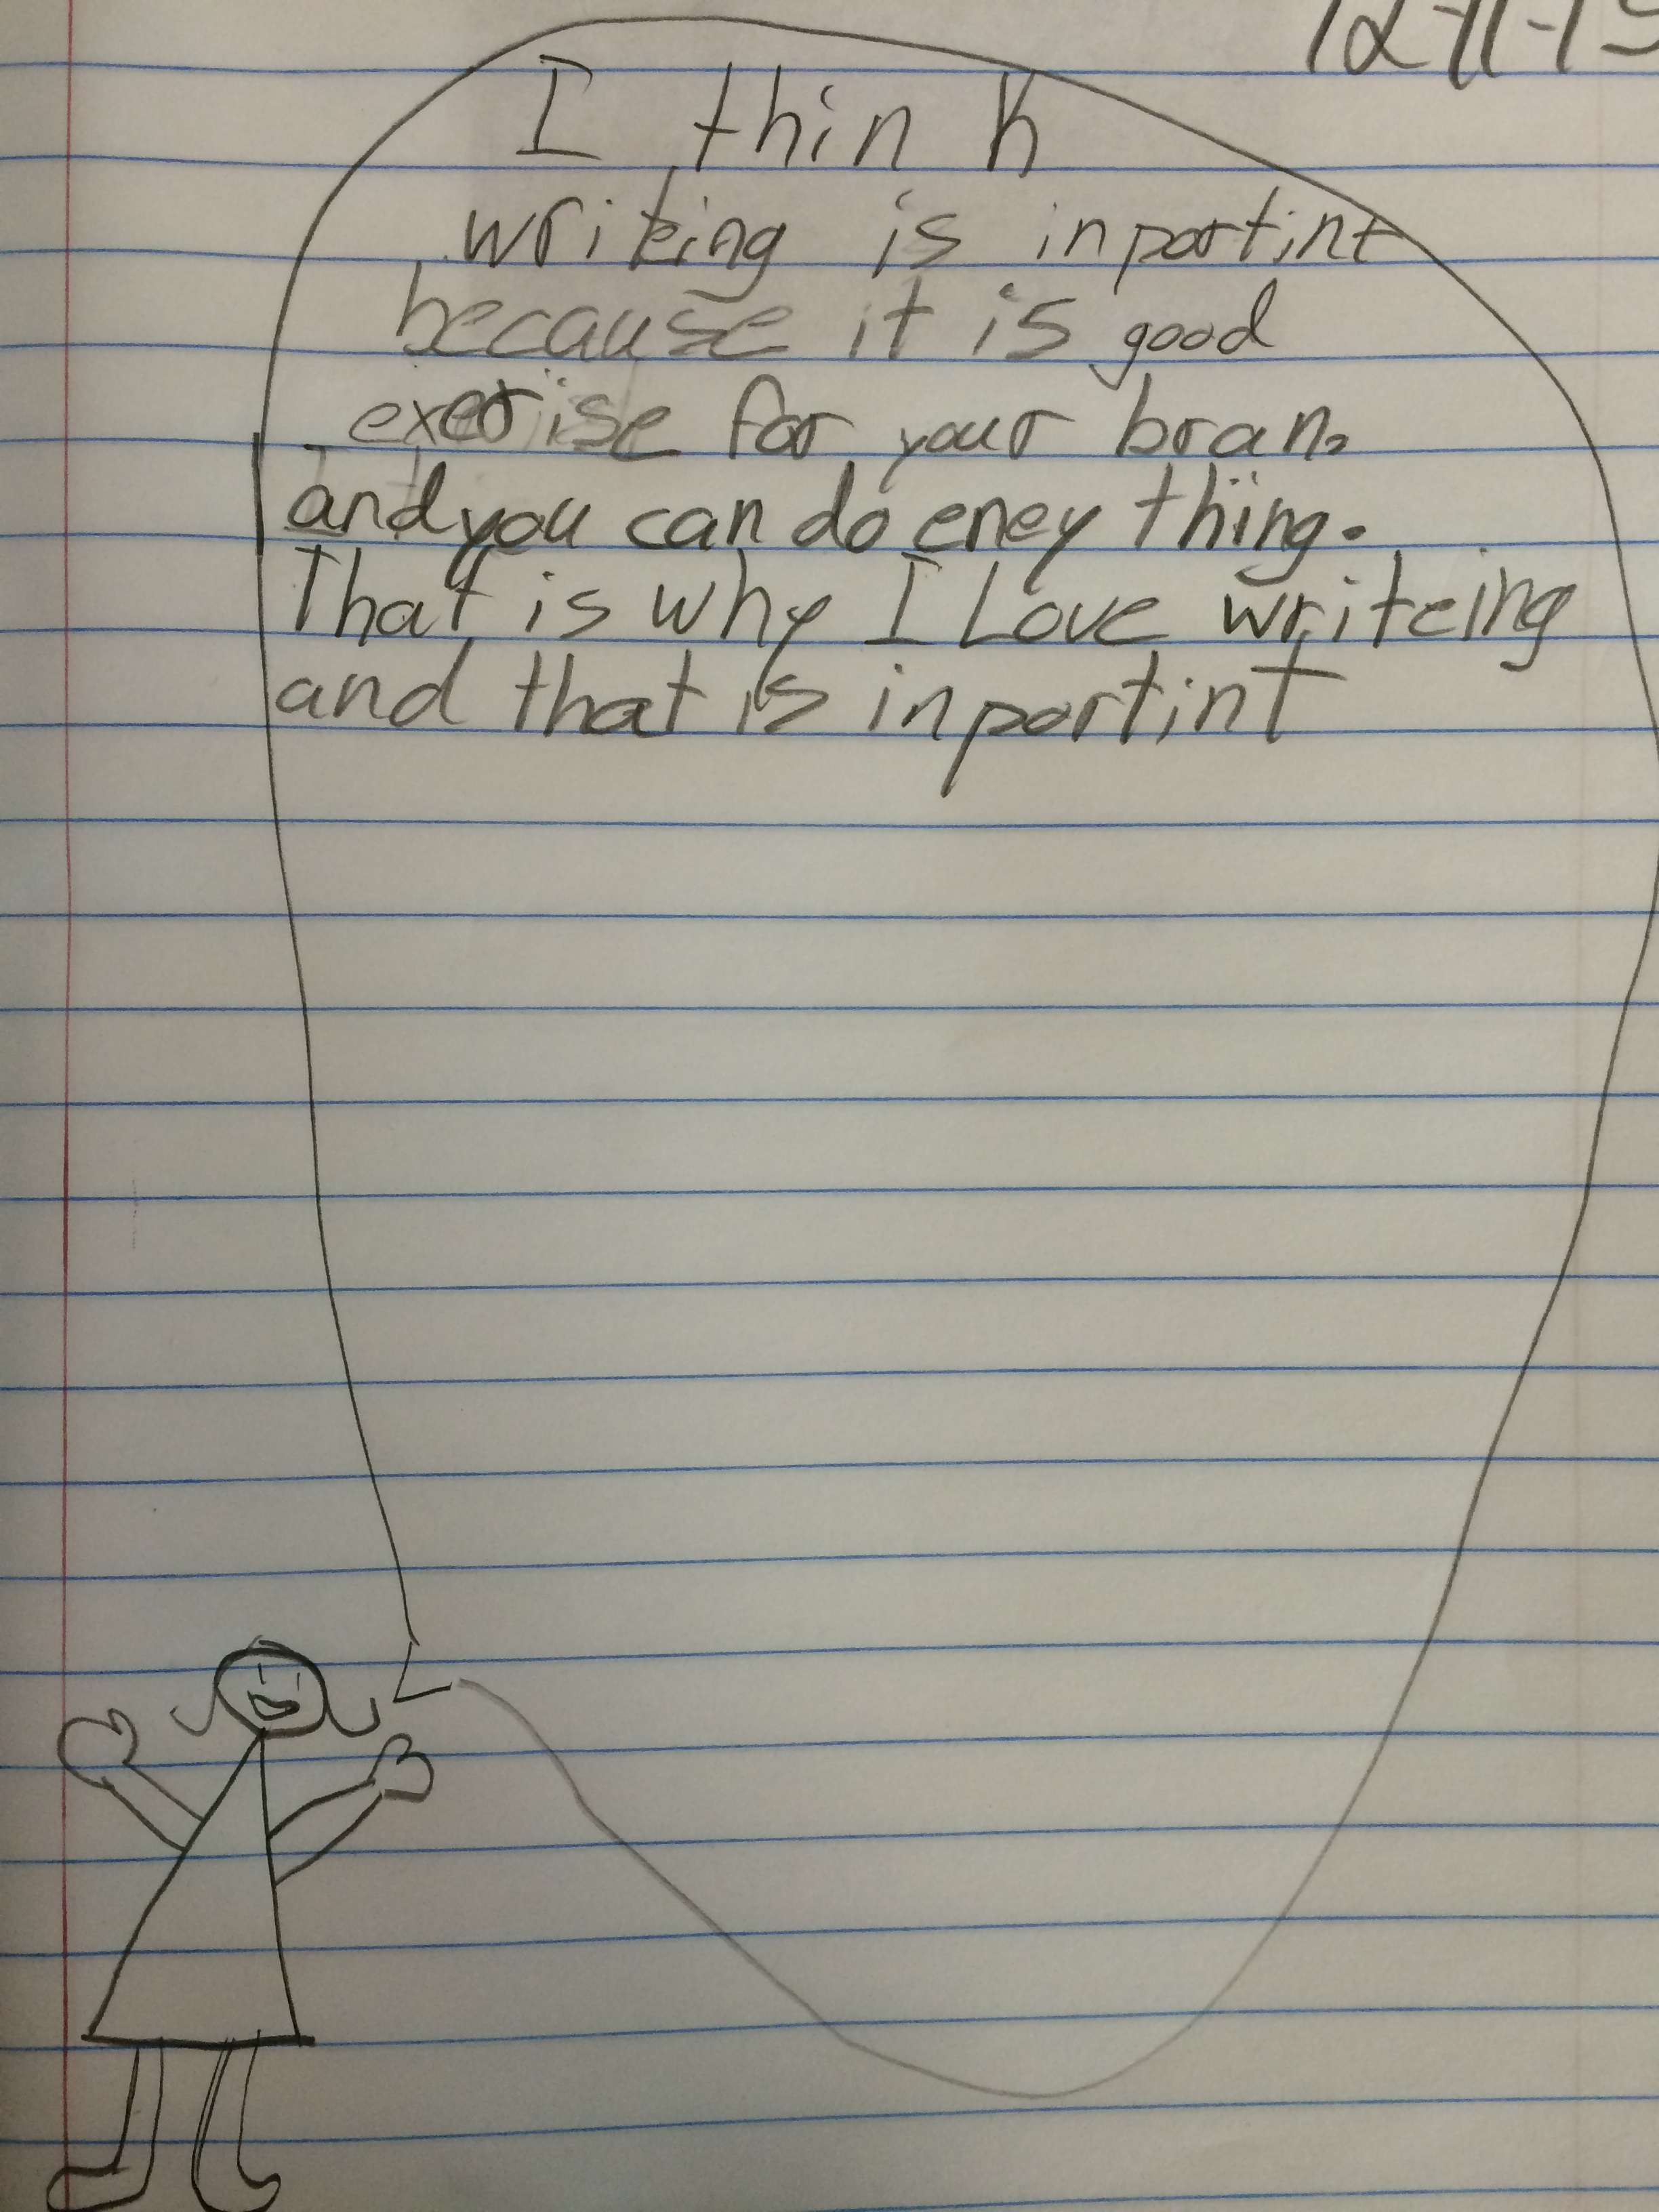 12-11-15
I think
writeing is inportint
because it is good
exerise for your bran,
and you can do eney thing.
That is why I Love writeing
and that is inportint